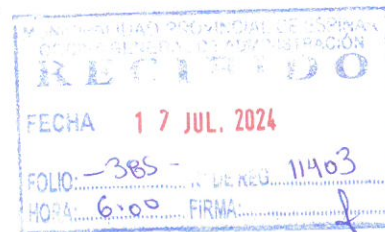 MUNICIPALIDAD PROVINCIAL DE ESPINAR
OFICINA GENERAL DE ADMINISTRACIÓN
RECIBIDO
FECHA 17 JUL. 2024
FOLIO: -385- N° DE REG. 11403
HORA: 6:00 FIRMA: